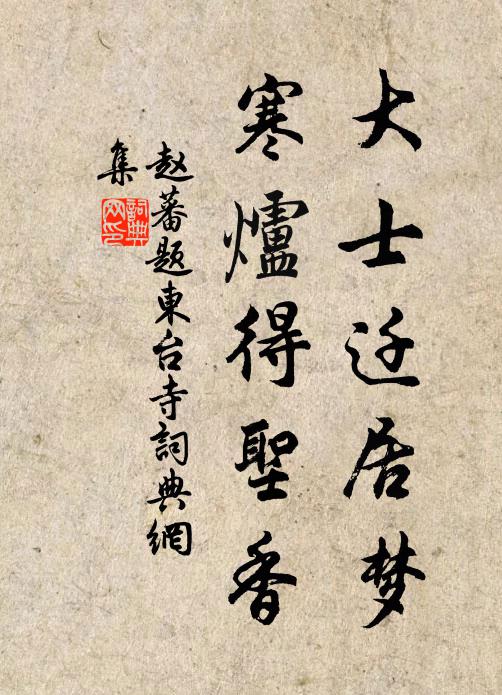 大士迁居梦
寒爐得聖香
赵蕃题東台寺詞典網
集
詞典網印